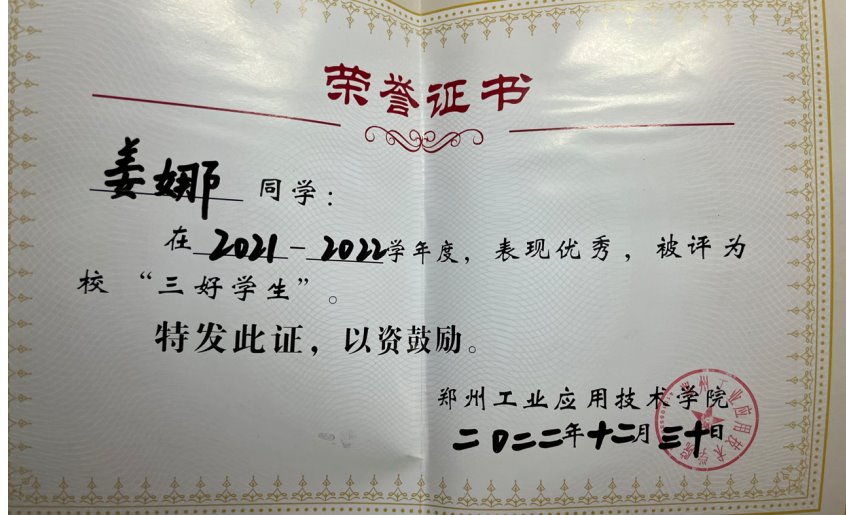 荣誉证书
姜娜 同学：
在2021-2022学年度，表现优秀，被评为
校“三好学生”。
特发此证，以资鼓励。
郑州工业应用技术学院
二〇二二年十二月三十日
郑州工业应用技术学院